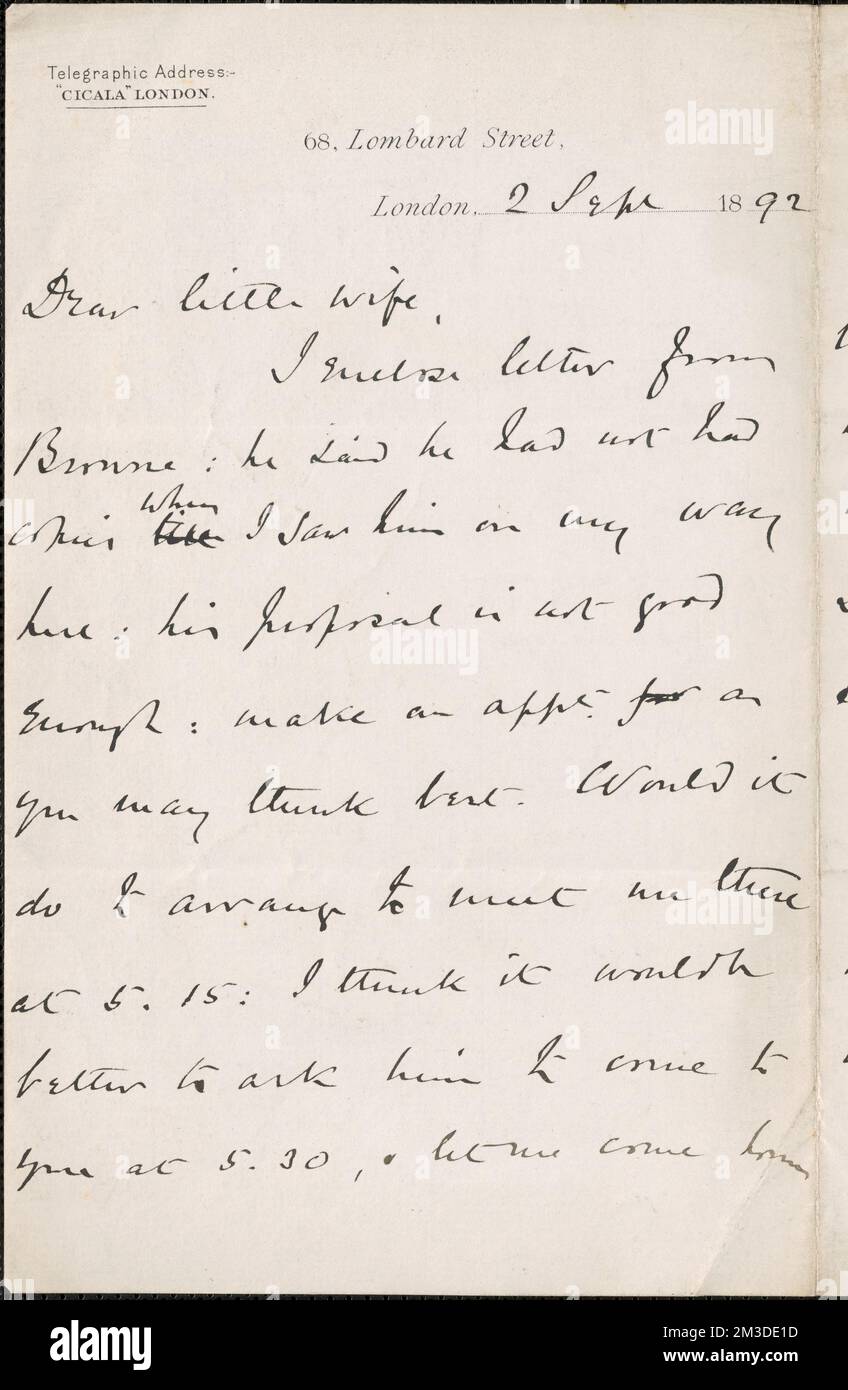 Telegraphic Address:-
"CICALA" LONDON.
68, Lombard Street,
London, 2 Sept 1892
Dear little wife,
I enclose letter from
Browne : he said he had not had
copies when I saw him on my way
here : his proposal is not good
enough : make an appt. for as
you may think best. Would it
do to arrange to meet me there
at 5.15 : I think it would be
better to ask him to come to
you at 5.30, & let me come home
alamy
Image ID: 2M3DE1D
www.alamy.com